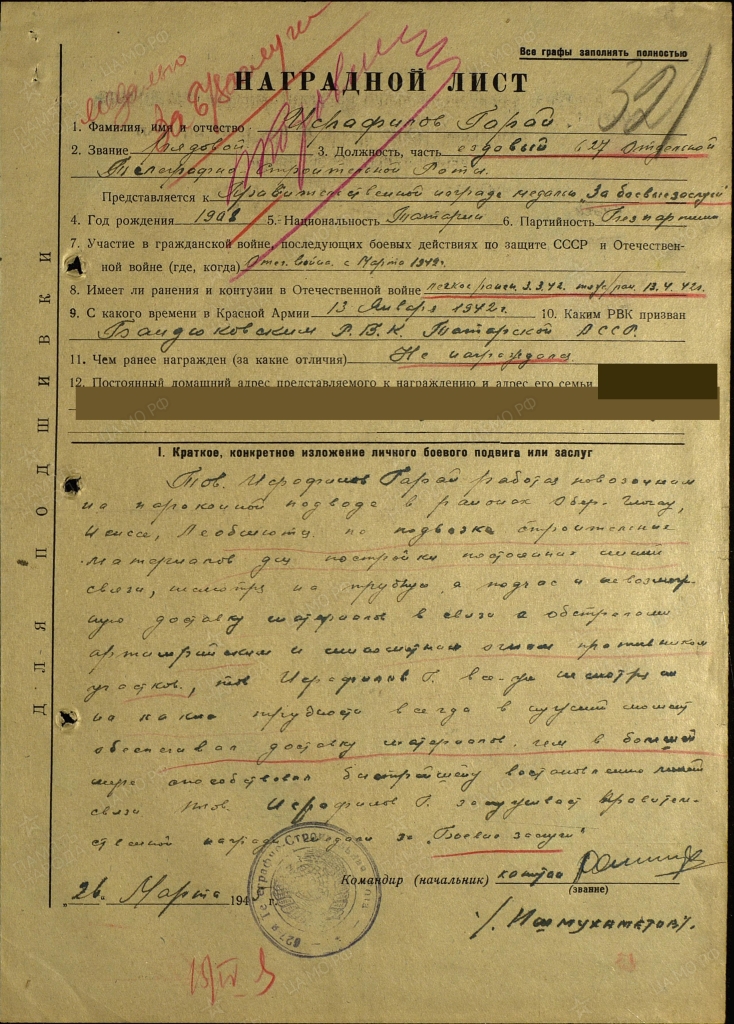 Все графы заполнять полностью
медалью
За б/заслуги
НАГРАДНОЙ ЛИСТ
321
1. Фамилия, имя и отчество Исрафилов Гарай.
2. Звание Рядовой 3. Должность, часть ездовый 627 Отдельной
Телеграфно Строительской Роты
Представляется к Правительственной награде медалью "За боевые заслуги"
4. Год рождения 1908 5. Национальность Татарин 6. Партийность Безпартийн
7. Участие в гражданской войне, последующих боевых действиях по защите СССР и Отечествен-
ной войне (где, когда) Отеч. война. с Марта 1942г.
8. Имеет ли ранения и контузии в Отечественной войне легкое/ранен. 3.3.42. тяж/ран. 13.4.42г.
9. С какого времени в Красной Армии 13 Января 1942г. 10. Каким РВК призван
Бандюковским Р.В.К. Татарской АССР.
11. Чем ранее награжден (за какие отличия) Не награждался
12. Постоянный домашний адрес представляемого к награждению и адрес его семьи
I. Краткое, конкретное изложение личного боевого подвига или заслуг
Тов. Исрафилов Гарай работая повозочным
на пароконной подводе в районах Обер-Глогау,
по подвозке строительных
материалов для постройки постоянных линий
связи, несмотря на трудную, а подчас и невозмож-
ную доставку материалов в связи с обстрелами
артиллерийским и минометным огнем противником
участков, тов Исрафилов Г. несмотря
на какие трудности всегда в нужный момент
обеспечивал доставку материалов, чем в большей
мере способствовал быстрейшему востановлению линий
связи. Тов. Исрафилов Г. заслуживает Правитель-
ственной награды медали за "Боевые заслуги"
Командир (начальник)
(звание)
"26" Марта 194 г.
/. Ишмухаметов/.
627я Телеграфно-Строительная рота
ДЛЯ ПОДШИВКИ
ЦАМО РФ